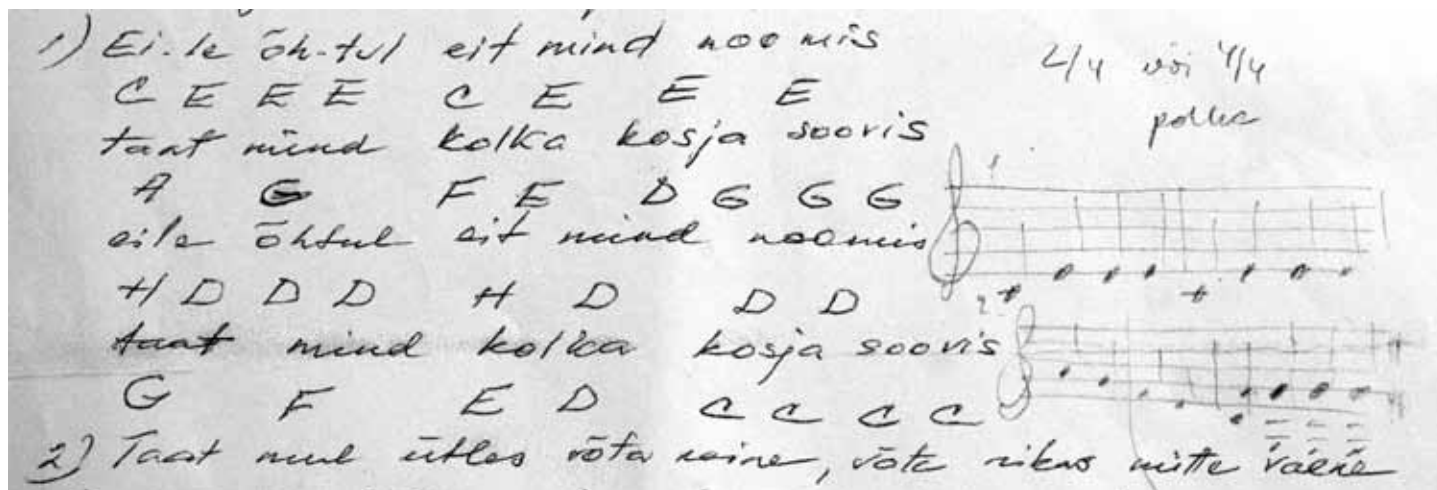 1) Ei-le õh-tul eit mind noomis
2/4 või 4/4
polka
C E E E C E E E
taat mind kolka kosja soovis
A G F E D G G G
1.
eile õhtul eit mind noomis
H D D D H D D D
2.
taat mind kolka kosja soovis
G F E D C C C C
2) Taat mul ütles võta naine, võta rikas mitte vaene